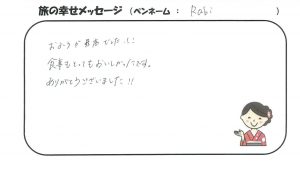 旅の幸せメッセージ (ペンネーム： Rabi )
おふろが最高だったし
食事もとってもおいしかったです。
ありがとうございました!!